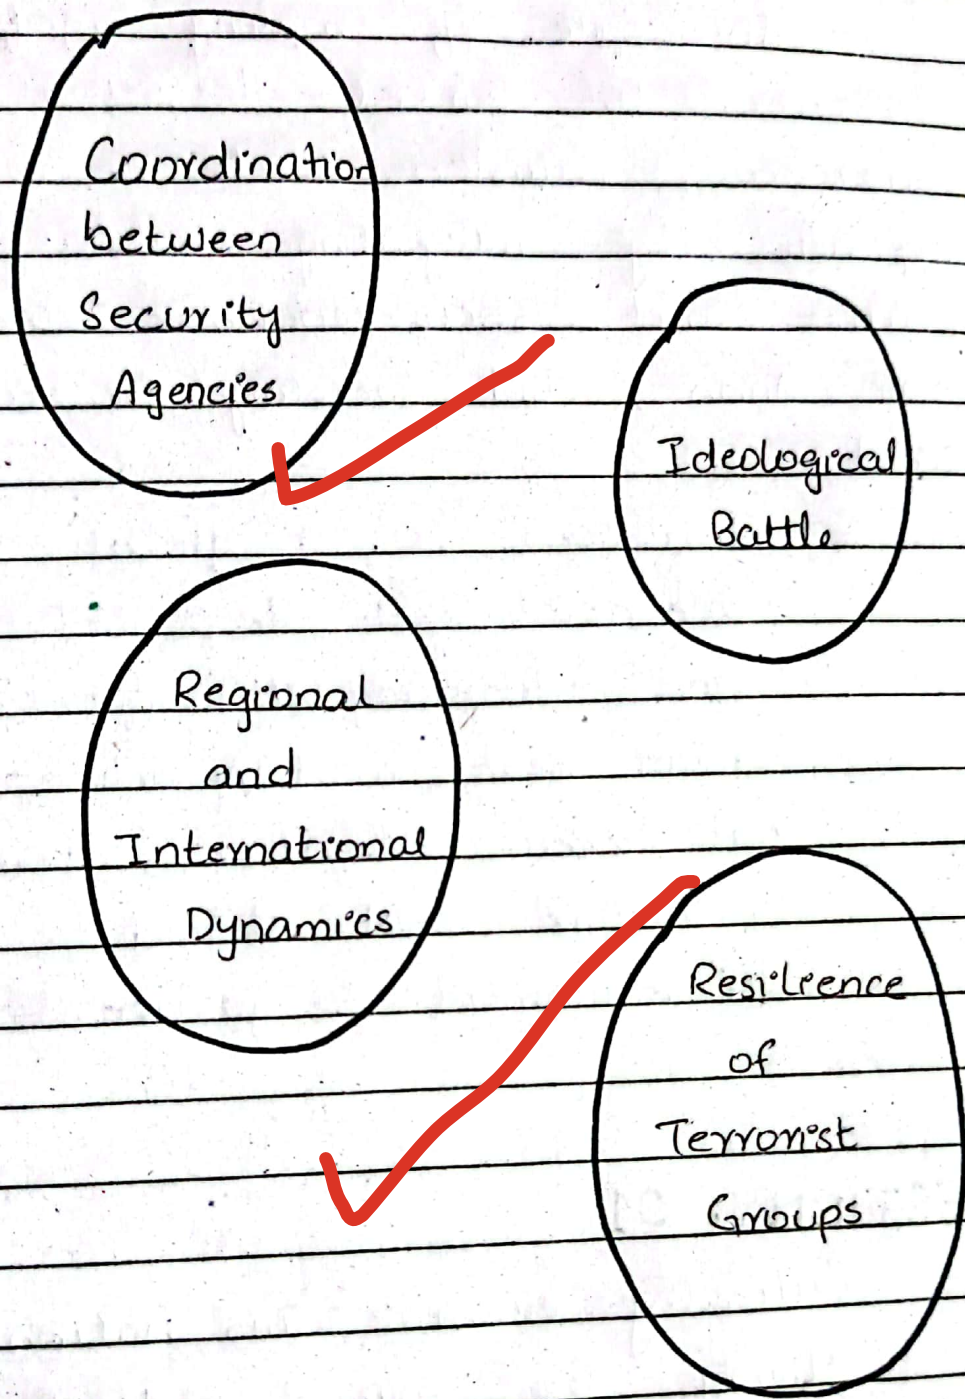 Coordination
between
Security
Agencies
Ideological
Battle
Regional
and
International
Dynamics
Resilience
of
Terrorist
Groups